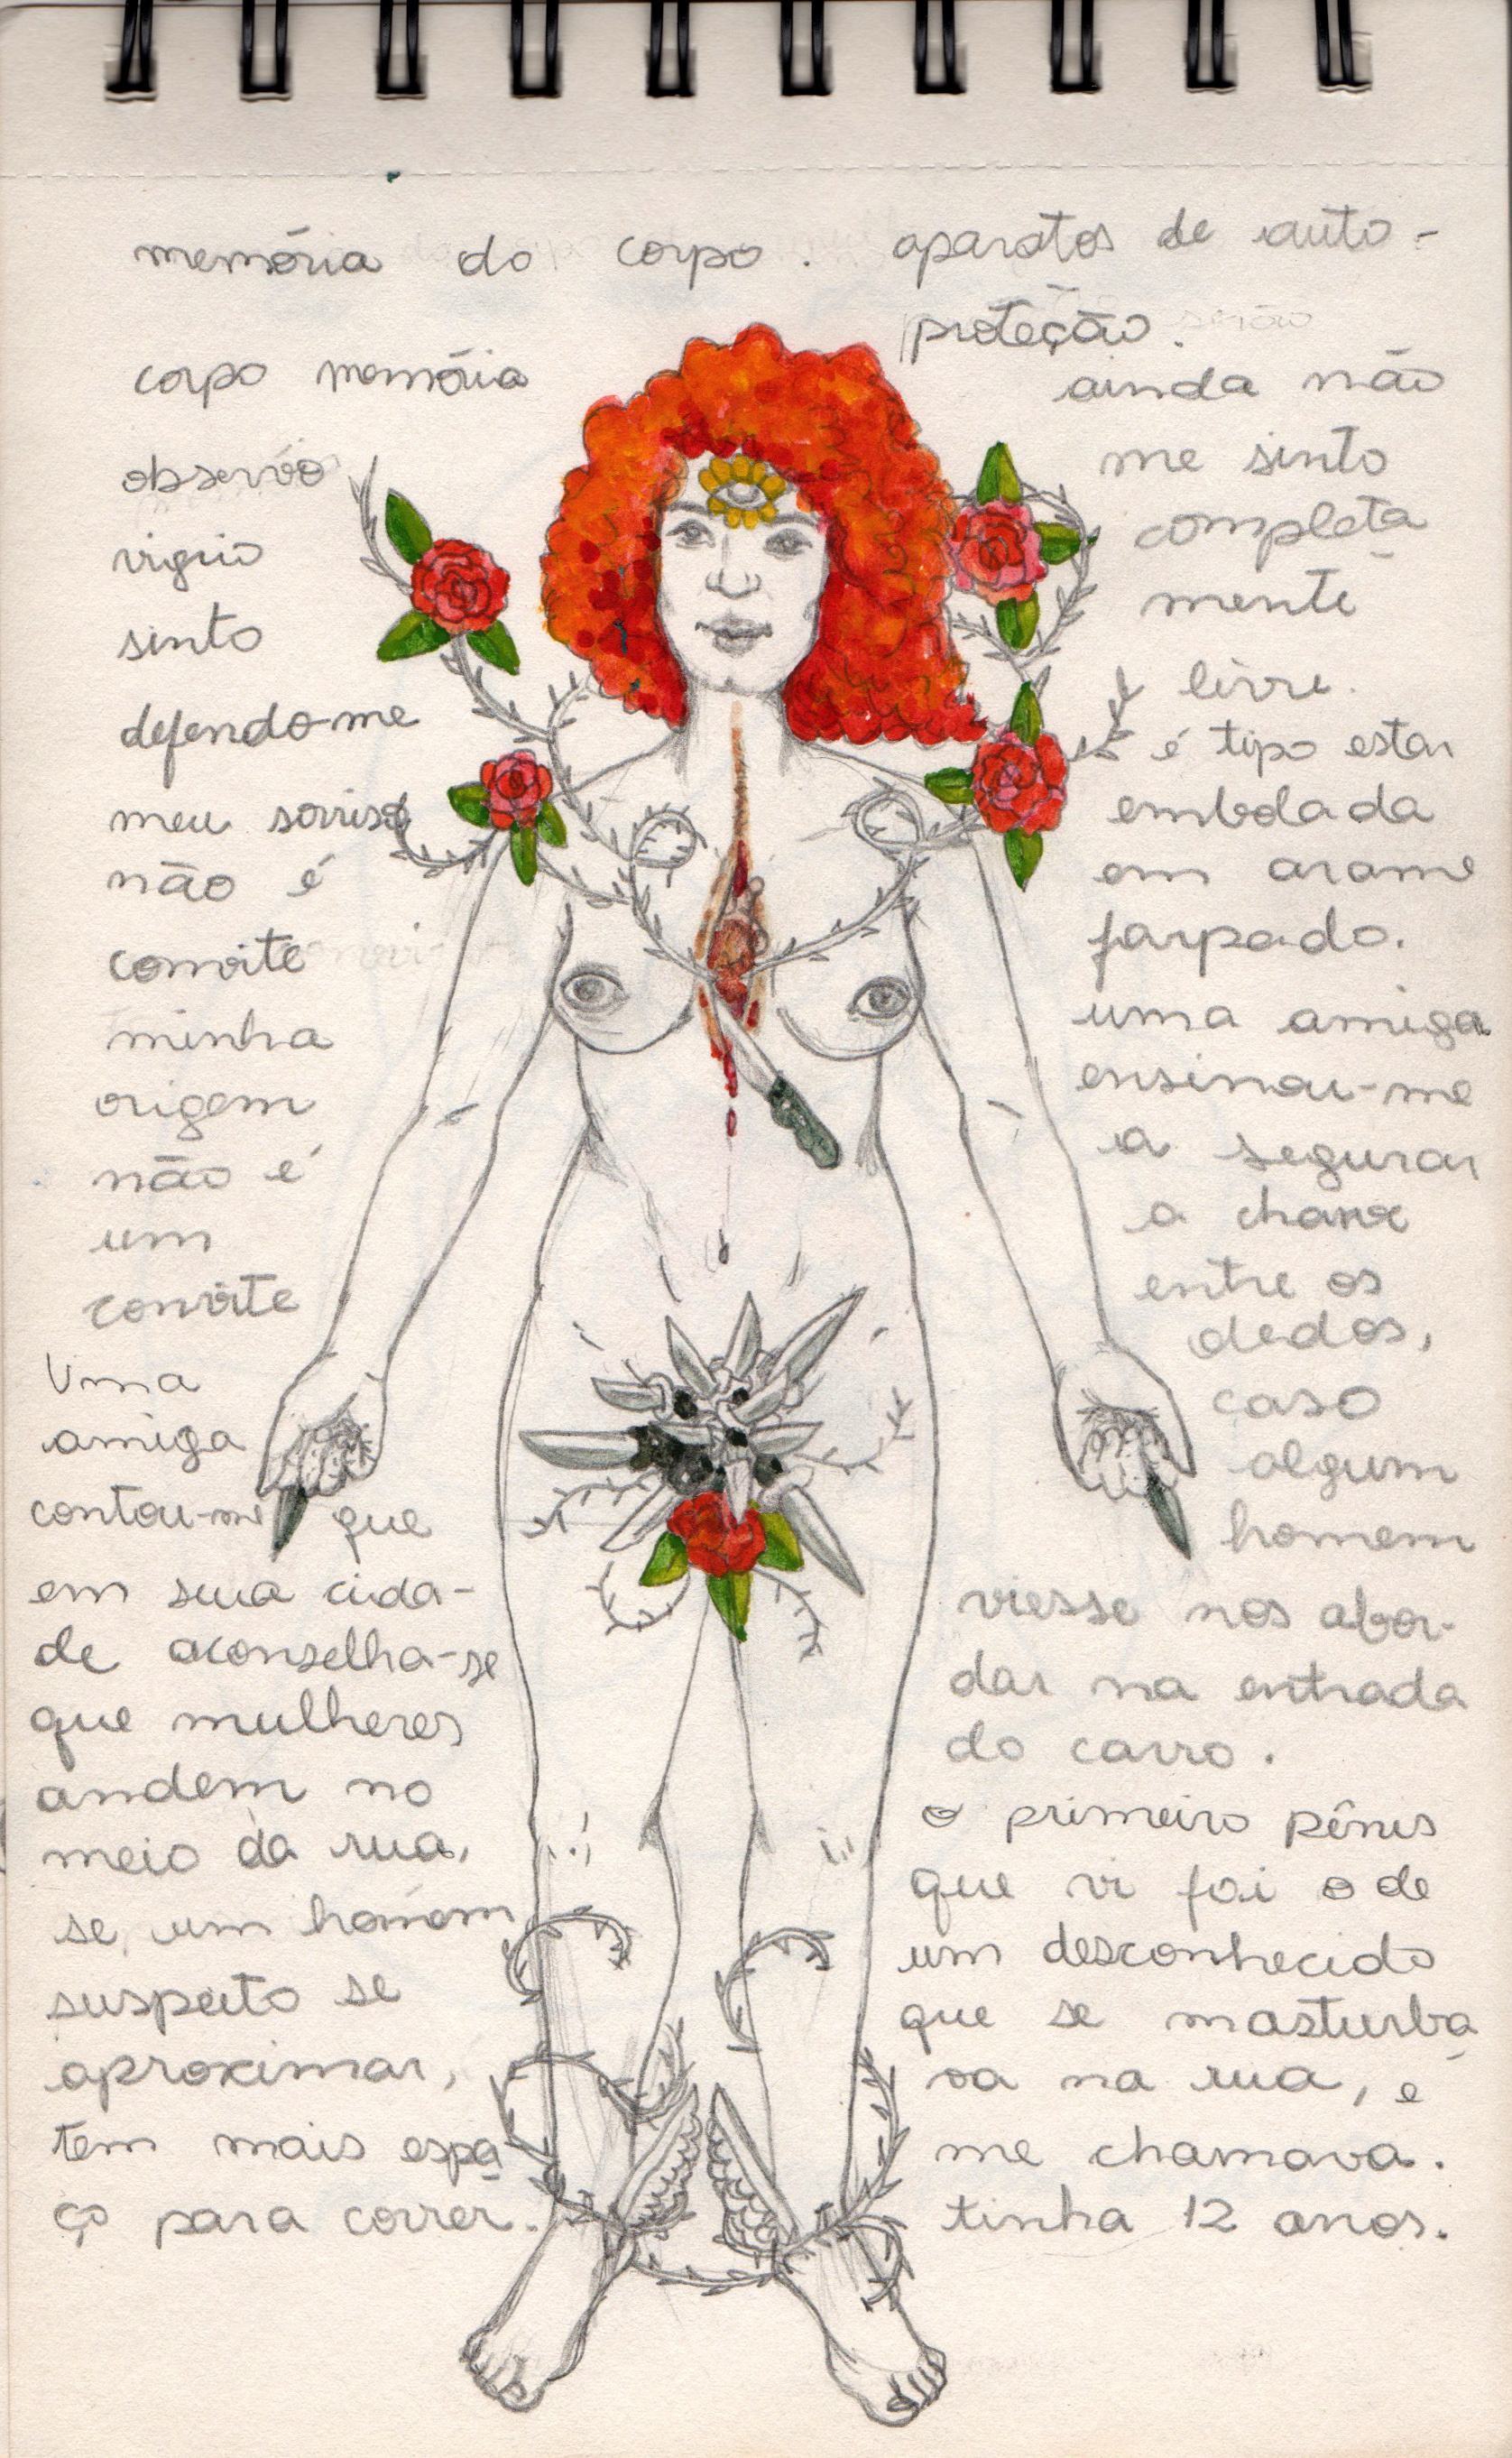 memória do corpo.
corpo memória
observo
vigio
sinto
defendo-me
meu sorriso
não é
convite
minha
origem
não é
um
convite
Uma
amiga
contou-me que
em sua cida-
de aconselha-se
que mulheres
andem no
meio da rua,
se um homem
suspeito se
aproximar,
tem mais espa
ço para correr.
aparatos de auto-
proteção.
ainda não
me sinto
completa
mente
livre.
é tipo estar
embolada
em arame
farpado.
uma amiga
ensinou-me
a segurar
a chave
entre os
dedos,
caso
algum
homem
viesse nos abor-
dar na entrada
do carro.
o primeiro pênis
que vi foi o de
um desconhecido
que se masturba
va na rua, e
me chamava.
tinha 12 anos.